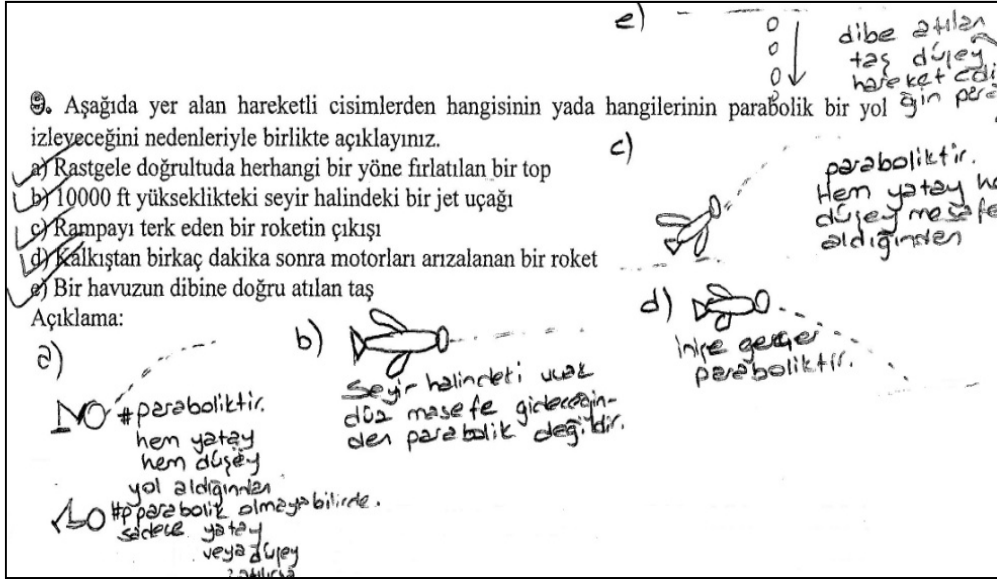 e)
dibe atılan
taş düşey
hareket edi
için para
9. Aşağıda yer alan hareketli cisimlerden hangisinin yada hangilerinin parabolik bir yol
izleyeceğini nedenleriyle birlikte açıklayınız.
a) Rastgele doğrultuda herhangi bir yöne fırlatılan bir top
b) 10000 ft yükseklikteki seyir halindeki bir jet uçağı
c) Rampayı terk eden bir roketin çıkışı
d) Kalkıştan birkaç dakika sonra motorları arızalanan bir roket
e) Bir havuzun dibine doğru atılan taş
Açıklama:
c)
paraboliktir.
Hem yatay he
düşey mesafe
aldığından
a)
#paraboliktir.
hem yatay
hem düşey
yol aldığından
#parabolik olmayabilirde.
sadece yatay
veya düşey
atılırsa
b)
Seyir halindeki uçak
düz masefe gideceğin-
den parabolik değildir.
d)
inişe geçer
paraboliktir.